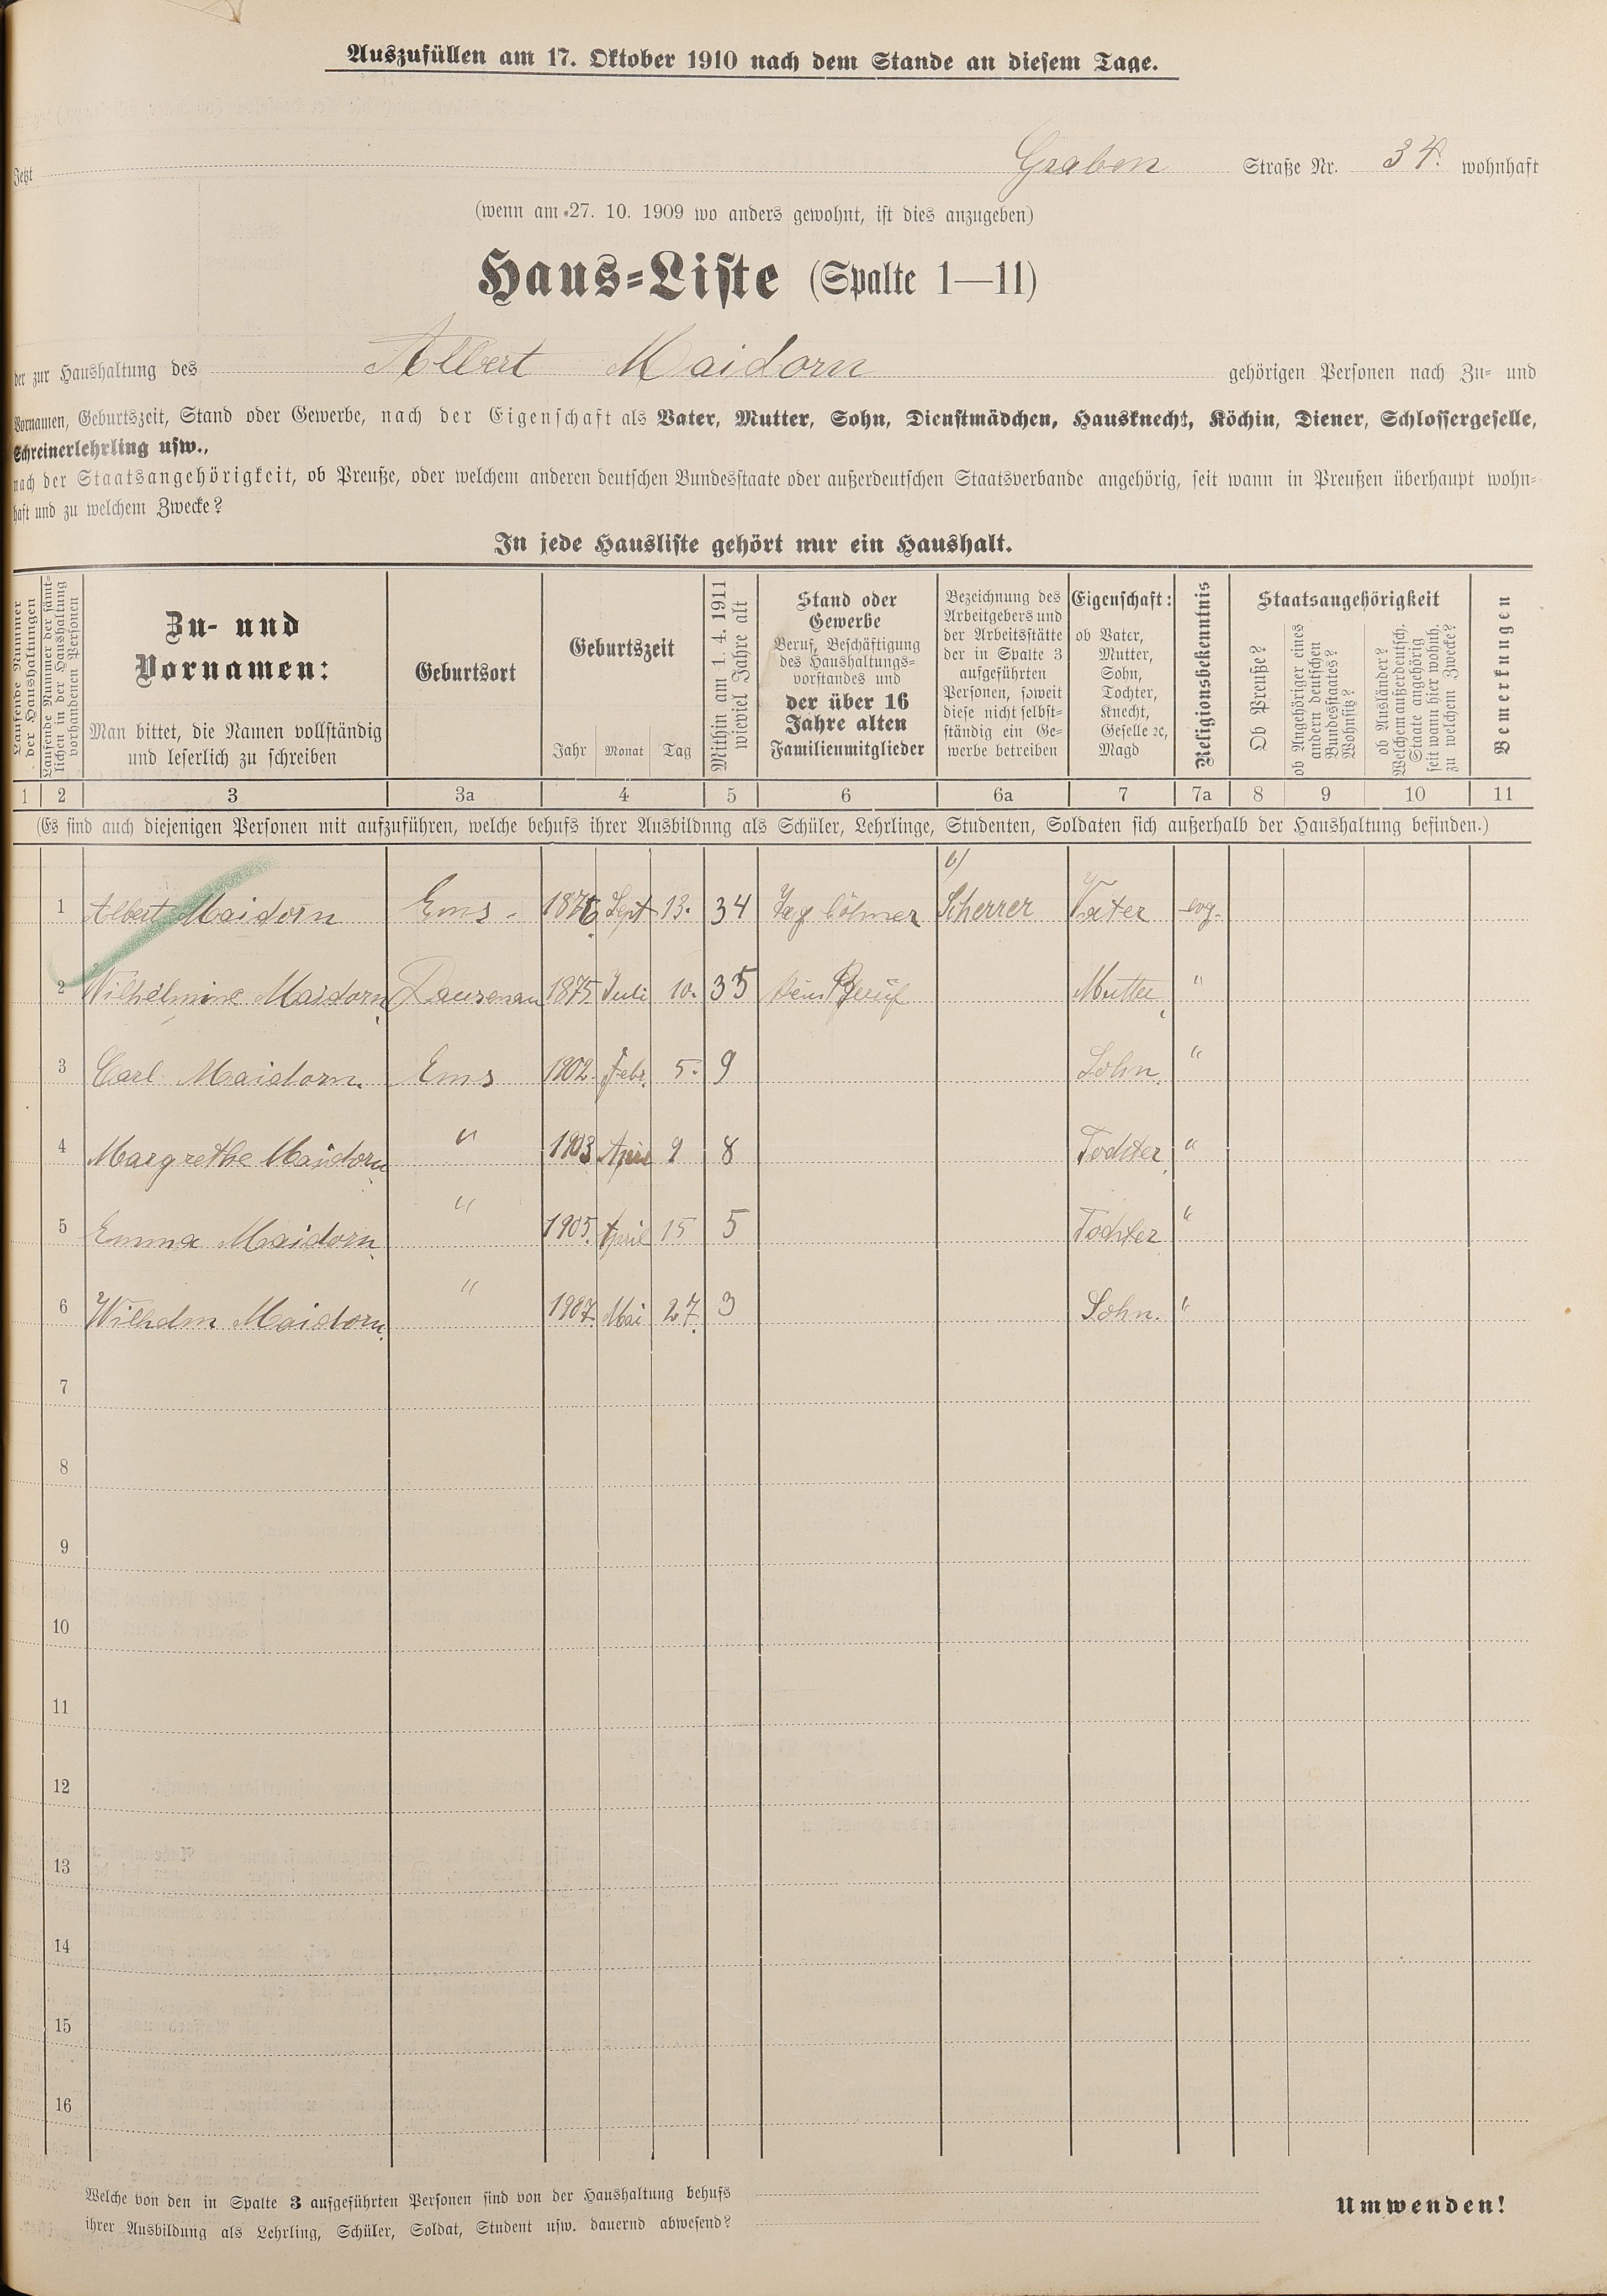 Auszufüllen am 17. Oktober 1910 nach dem Stande an diesem Tage.
Jetzt Graben Straße Nr. 34. wohnhaft
(wenn am 27. 10. 1909 wo anders gewohnt, ist dies anzugeben)
Haus-Liste (Spalte 1—11)
der zur Haushaltung des Albert Maidorn gehörigen Personen nach Zu- und
Vornamen, Geburtszeit, Stand oder Gewerbe, nach der Eigenschaft als Vater, Mutter, Sohn, Dienstmädchen, Hausknecht, Köchin, Diener, Schlossergeselle,
Schreinerlehrling usw.,
nach der Staatsangehörigkeit, ob Preuße, oder welchem anderen deutschen Bundesstaate oder außerdeutschen Staatsverbande angehörig, seit wann in Preußen überhaupt wohn-
haft und zu welchem Zwecke?
In jede Hausliste gehört nur ein Haushalt.
Laufende Nummer
der Haushaltungen
Laufende Nummer der sämt-
lichen in der Haushaltung
vorhandenen Personen
Zu- und
Vornamen:
Man bittet, die Namen vollständig
und leserlich zu schreiben
Geburtsort
Geburtszeit
Jahr Monat Tag
Mithin am 1. 4. 1911
wieviel Jahre alt
Stand oder
Gewerbe
Beruf, Beschäftigung
des Haushaltungs-
vorstandes und
der über 16
Jahre alten
Familienmitglieder
Bezeichnung des
Arbeitgebers und
der Arbeitsstätte
der in Spalte 3
aufgeführten
Personen, soweit
diese nicht selbst-
ständig ein Ge-
werbe betreiben
Eigenschaft:
ob Vater,
Mutter,
Sohn,
Tochter,
Knecht,
Geselle ꝛc,
Magd
Religionsbekenntnis
Staatsangehörigkeit
Ob Preuße?
ob Angehöriger eines
andern deutschen
Bundesstaates?
Wohnsitz?
ob Ausländer?
Welchem außerdeutsch.
Staate angehörig
seit wann hier wohnh.
zu welchem Zwecke?
Bemerkungen
1 2 3 3a 4 5 6 6a 7 7a 8 9 10 11
(Es sind auch diejenigen Personen mit aufzuführen, welche behufs ihrer Ausbildung als Schüler, Lehrlinge, Studenten, Soldaten sich außerhalb der Haushaltung befinden.)
1 Albert Maidorn Ems. 1876 Sept 13. 34 Tag löhner Scherrer Vater evg.
2 Wilhelmine Maidorn Dausenau 1875 Juli 10. 35 kein Beruf Mutter "
3 Carl Maidorn. Ems 1902 Febr. 5. 9 Sohn. "
4 Margrethe Maidorn " 1903 April 9 8 Tochter "
5 Emma Maidorn " 1905. April 15 5 Tochter "
6 Wilhelm Maidorn. " 1907. Mai 27. 3 Sohn. "
7
8
9
10
11
12
13
14
15
16
Welche von den in Spalte 3 aufgeführten Personen sind von der Haushaltung behufs
ihrer Ausbildung als Lehrling, Schüler, Soldat, Student usw. dauernd abwesend?
Umwenden!